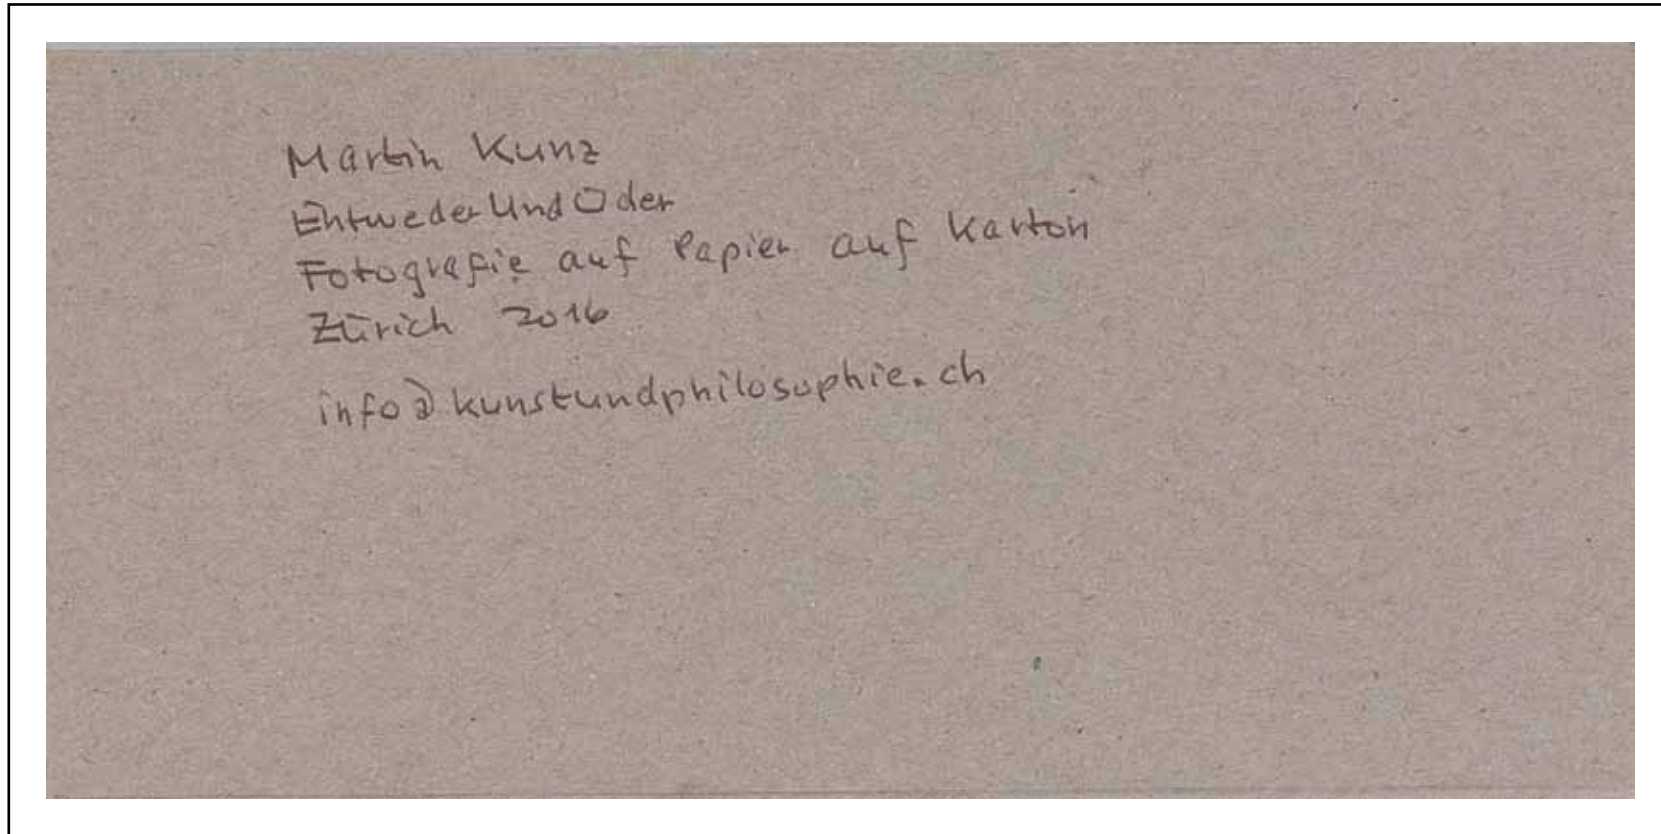 Martin Kunz
EntwederUndOder
Fotografie auf Papier auf Karton
Zürich 2016
info@kunstundphilosophie.ch